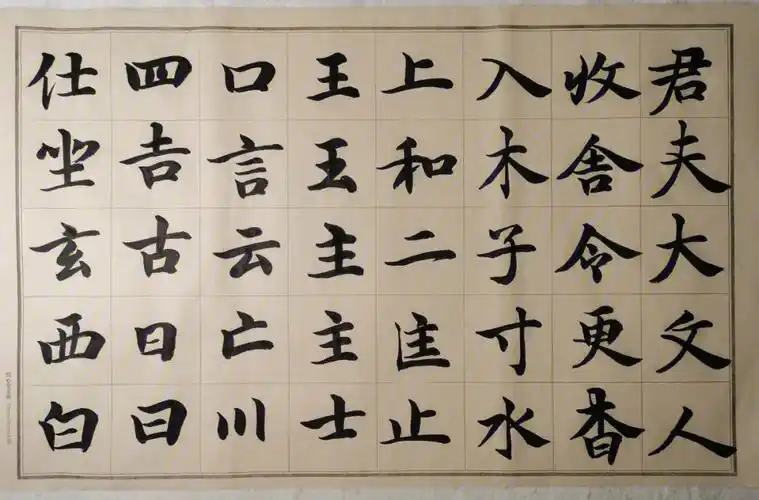 君夫大文人
收舍令更香
入木子寸水
上和二匡止
王玉主主士
口言云亡川
四吉古日曰
仕坐玄西白